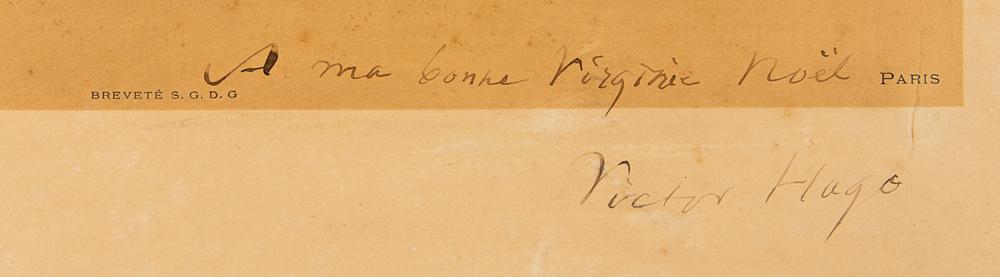 A ma bonne Virginie Noël
BREVETÉ S. G. D. G PARIS
Victor Hugo